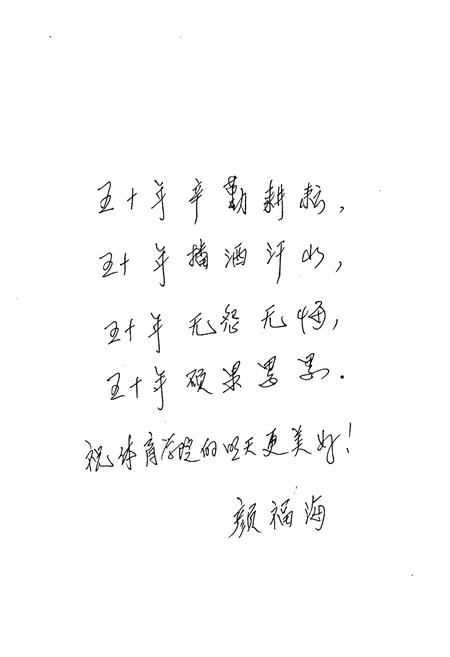 五十年辛勤耕耘，
五十年播洒汗水，
五十年无怨无悔，
五十年硕果累累.
祝体育学院的明天更美好！
颜福海